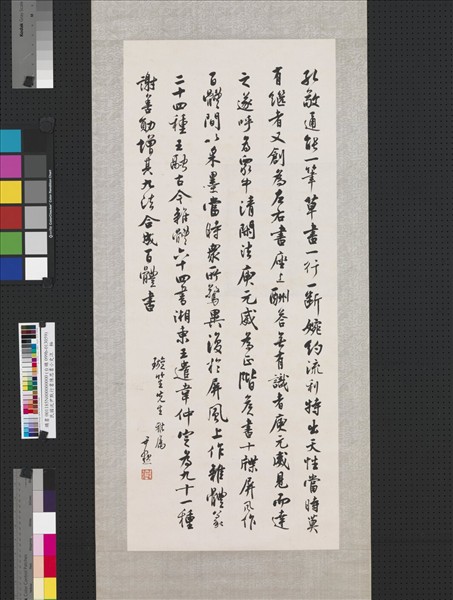 孔敬通能一筆草書一行一斷婉約流利特出天性當時莫
有繼者又創為左右書座上酬答無有識者庾元威見而達
之遂呼為眾中清閒法庾元威為正階侯書十牒屏風作
百體間以采墨當時眾所驚異後於屏風上作雜體篆
二十四種王融古今雜體六十四書湘東王遣韋仲定為九十一種
謝善勛增其九法合成百體書
璇笙先生雅屬
尹默